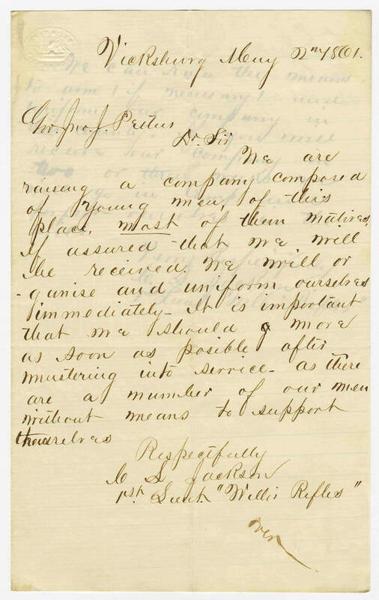 Vicksburg May 2nd 1861.
Gov Jno J. Pettus
Dr Sir
We are
raising a company composed
of young men of this
place, most of them natives,
if assured that we will
be received. We will or
-ganise and uniform ourselves
immediately - It is important
that we should move
as soon as posible after
mustering into service - as there
are a number of our men
without means to support
themselves
Respectfully
C S Jackson
1st Lieut "Willis Rifles"